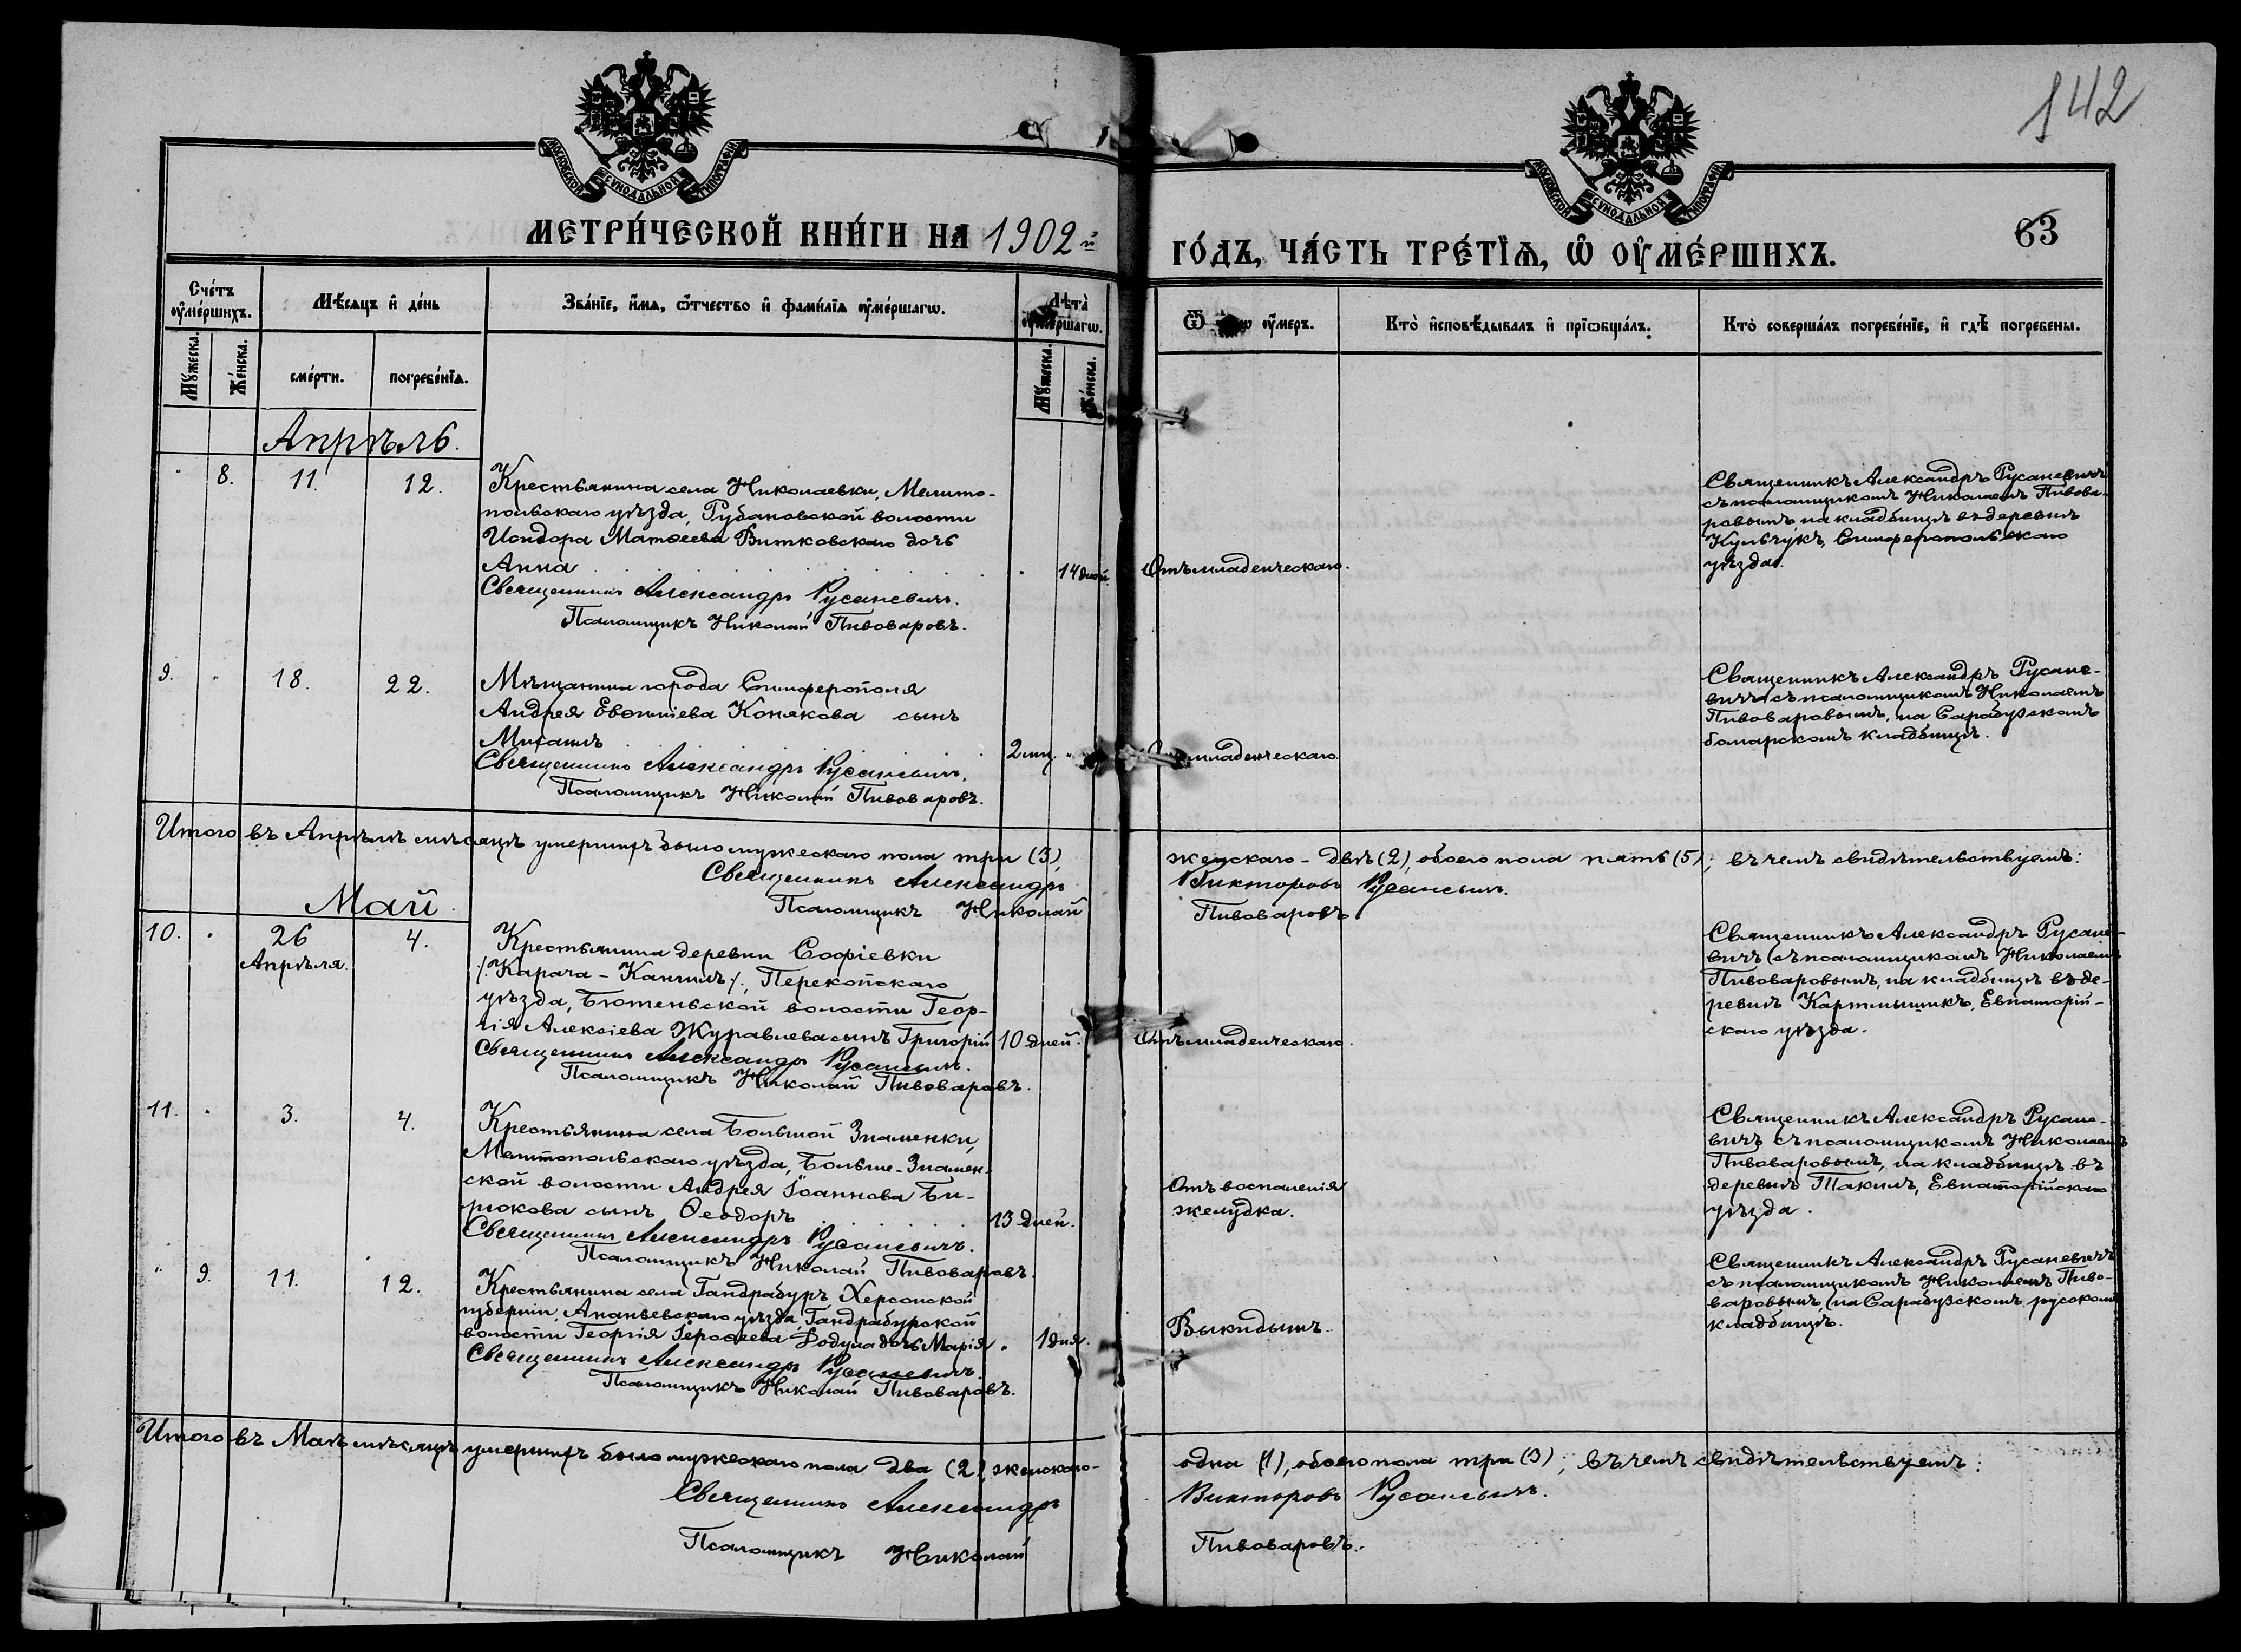 142
МОСКОВСКОЙ СУНОДАЛЬНОЙ ТИПОГРАФІИ
МОСКОВСКОЙ СУНОДАЛЬНОЙ ТИПОГРАФІИ
МЕТРИ́ЧЕСКОЙ КНИ́ГИ НА 1902й
ГО́ДЪ, ЧА́СТЬ ТРЕ́ТІѦ, Ѡ ОУ҆МЕ́РШИХЪ.
63
Сче́тъ оу҆ме́ршихъ.
Мѣ́сяцъ и҆ де́нь
Зва́нїе, и҆́мѧ, ѻ҆́тчество и҆ фами́лїѧ оу҆ме́ршагѡ.
Лѣта̀ оу҆ме́ршагѡ.
Ѿ оу҆́меръ.
Кто̀ и҆сповѣ́дывалъ и҆ прїѡбща́лъ.
Кто̀ соверша́лъ погребе́нїе, и҆ гдѣ̀ погребены.
Му́жеска.
Же́нска.
сме́рти.
погребе́нїѧ.
Му́жеска.
Же́нска.
Апрѣль.
" 8. 11. 12.
Крестьянина села Николаевки, Мелито-
польскаго уѣзда, Рубановской волости
Исидора Матѳеева Витковскаго дочь
Анна . 14 дней.
Священникъ Александръ Русаневичъ.
Псаломщикъ Николай Пивоваровъ.
Отъ младенческаго.
Священникъ Александръ Русаневичъ
съ псаломщикомъ Николаемъ Пивова-
ровымъ, на кладбищѣ въ деревнѣ
Кульчукъ, Симферопольскаго
уѣзда.
9. " 18. 22.
Мѣщанина города Симферополя
Андрея Евѳиміева Конякова сынъ
Михаилъ 2 мц. "
Священникъ Александръ Русаневичъ.
Псаломщикъ Николай Пивоваровъ.
младенческаго.
Священникъ Александръ Русане-
вичъ съ псаломщикомъ Николаемъ
Пивоваровымъ, на Сарабузскомъ
болгарскомъ кладбищѣ.
Итого въ Апрѣлѣ мѣсяцѣ умершихъ было мужескаго пола три (3)
женскаго - двѣ (2), обоего пола пять (5); въ чемъ свидѣтельствуемъ:
Священникъ Александръ
Викторовъ Русаневичъ.
Псаломщикъ Николай
Пивоваровъ
Май.
10. " 26 Апрѣля. 4.
Крестьянина деревни Софіевки
/.Карача-Кангилъ/., Перекопскаго
уѣзда, Бютеньской волости Геор-
гія Алексіева Журавлева сынъ Григорій 10 дней.
Священникъ Александръ Русаневичъ.
Псаломщикъ Николай Пивоваровъ.
Отъ младенческаго.
Священникъ Александръ Русане-
вичъ съ псаломщикомъ Николаемъ
Пивоваровымъ, на кладбищѣ въ де-
ревнѣ Картмышикъ, Евпаторій-
скаго уѣзда.
11. " 3. 4.
Крестьянина села Большой Знаменки,
Мелитопольскаго уѣзда, Больше-Знамен-
ской волости Андрея Іоаннова Би-
рюкова сынъ Ѳеодоръ 13 дней.
Священникъ Александръ Русаневичъ.
Псаломщикъ Николай Пивоваровъ.
Отъ воспаленія
желудка.
Священникъ Александръ Русане-
вичъ съ псаломщикомъ Николаемъ
Пивоваровымъ, на кладбищѣ въ
деревнѣ Такилъ, Евпаторійскаго
уѣзда.
" 9. 11. 12.
Крестьянина села Гандрабуръ Херсонской
губерніи, Ананьевскаго уѣзда, Гандрабурской
волости Георгія Іероѳеева Додула дочь Марія . 1 дня.
Священникъ Александръ Русаневичъ.
Псаломщикъ Николай Пивоваровъ.
Выкидышъ.
Священникъ Александръ Русаневичъ
съ псаломщикомъ Николаемъ Пиво-
варовымъ, на Сарабузскомъ русскомъ
кладбищѣ.
Итого въ Маѣ мѣсяцѣ умершихъ было мужескаго пола два (2) женскаго-
одна (1), обоего пола три (3); въ чемъ свидѣтельствуемъ:
Священникъ Александръ
Викторовъ Русаневичъ.
Псаломщикъ Николай
Пивоваровъ.